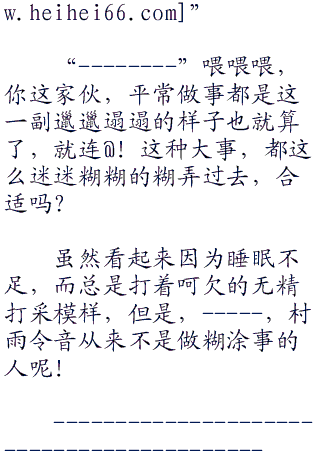 w.heihei66.com]”
“--------”喂喂喂，
你这家伙，平常做事都是这
一副邋邋遢遢的样子也就算
了，就连@！这种大事，都这
么迷迷糊糊的糊弄过去，合
适吗？
虽然看起来因为睡眠不
足，而总是打着呵欠的无精
打采模样，但是，-----，村
雨令音从来不是做糊涂事的
人呢！
----------------------
----------------------